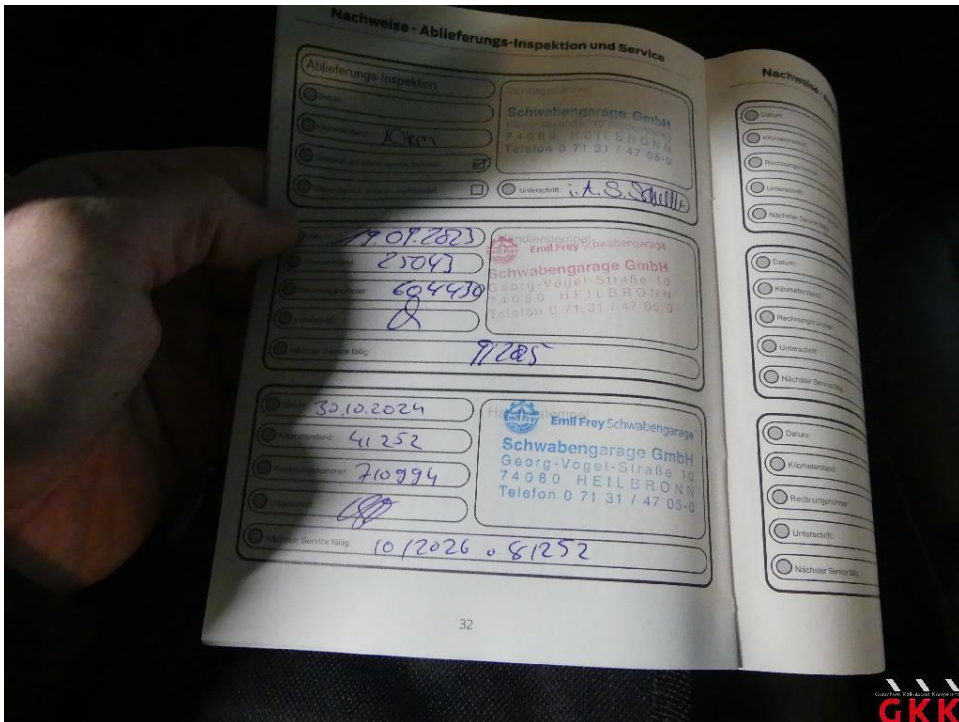 Nachweise - Ablieferungs-Inspektion und Service
Ablieferungs-Inspektion
10km
Schwabengarage GmbH
74080 HEILBRONN
Telefon 0 71 31 / 47 05-0
Unterschrift:
i.A. S.
25043
604430
Händlerstempel
Emil Frey Schwabengarage
Schwabengarage GmbH
Georg-Vogel-Straße 10
74080 HEILBRONN
Telefon 0 71 31 / 47 05-0
Nächster Service fällig:
30.10.2024
Kilometerstand: 41252
Rechnungsnummer 710994
Händlerstempel
Emil Frey
Emil Frey Schwabengarage
Schwabengarage GmbH
Georg-Vogel-Straße 10
74080 HEILBRONN
Telefon 0 71 31 / 47 05-0
Nächster Service fällig: 10/2026 o 81252
32
Nachweise
Datum:
Kilometerstand:
Rechnungsnummer
Unterschrift:
Nächster Service fällig
Datum:
Kilometerstand:
Rechnungsnummer
Unterschrift:
Nächster Service fällig
Datum:
Kilometerstand:
Rechnungsnummer
Unterschrift:
Nächster Service fällig
GKK